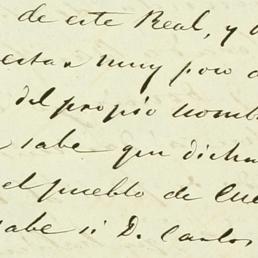 de este Real, y
estar muy poco
del propio nombr
sabe que dicha
el pueblo de Cue
sabe si D. Carlos